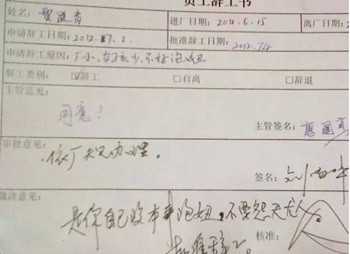 员工辞工书
姓名：
进厂日期：2011.5.15
离厂日期：2
申请辞工日期：2012.7.2.
批准辞工日期：2012.7/4
申请辞工原因：厂小，女孩太少，不好泡妞
辞工类别：
☑辞工
□自离
□辞退
主管意见：
同意！
主管签名：
审批意见：
依厂规办理。
签名：
裁决意见：
是你自己没本事泡妞，不要怨天尤人
批准辞工。
核准：